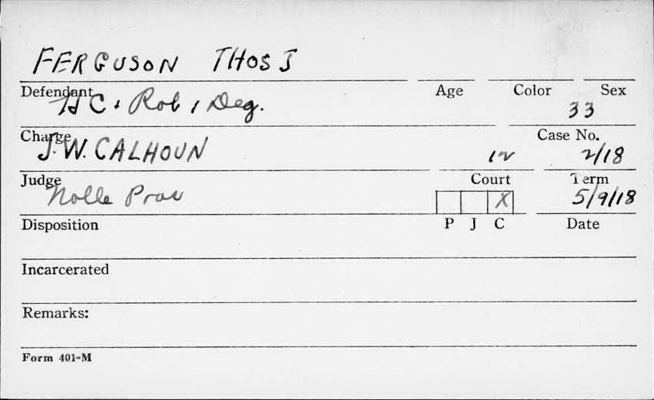 FERGUSON THOS J
Defendant Age Color Sex
HC & Rob 1 Deg. 33
Charge Case No.
J.W. CALHOUN 12 2/18
Judge Court Term
Nolle Pros X 5/9/18
Disposition P J C Date
Incarcerated
Remarks:
Form 401-M